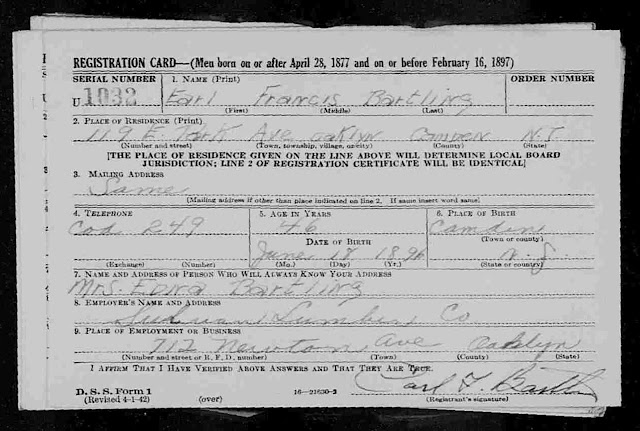 REGISTRATION CARD—(Men born on or after April 28, 1877 and on or before February 16, 1897)
SERIAL NUMBER 1. NAME (Print) ORDER NUMBER
U 1032 Earl Francis Bartling
(First) (Middle) (Last)
2. PLACE OF RESIDENCE (Print)
119 E. Park Ave Oaklyn Camden N.J.
(Number and street) (Town, township, village, or city) (County) (State)
[THE PLACE OF RESIDENCE GIVEN ON THE LINE ABOVE WILL DETERMINE LOCAL BOARD
JURISDICTION; LINE 2 OF REGISTRATION CERTIFICATE WILL BE IDENTICAL]
3. MAILING ADDRESS
Same
(Mailing address if other than place indicated on line 2. If same insert word same)
4. TELEPHONE 5. AGE IN YEARS 6. PLACE OF BIRTH
Cod. 249 46 Camden
DATE OF BIRTH (Town or county)
June 17 1896 N.J.
(Exchange) (Number) (Mo.) (Day) (Yr.) (State or country)
7. NAME AND ADDRESS OF PERSON WHO WILL ALWAYS KNOW YOUR ADDRESS
Mrs. Edna Bartling
8. EMPLOYER'S NAME AND ADDRESS
Lumber Co
9. PLACE OF EMPLOYMENT OR BUSINESS
712 Newton Ave Oaklyn
(Number and street or R. F. D. number) (Town) (County) (State)
I AFFIRM THAT I HAVE VERIFIED ABOVE ANSWERS AND THAT THEY ARE TRUE.
D. S. S. Form 1 16—21630-2 Earl F. Bartling
(Revised 4-1-42) (over) (Registrant's signature)